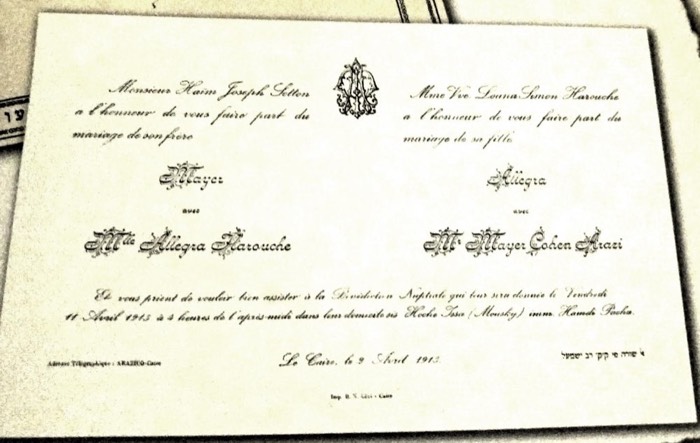 Monsieur Haim Joseph Setton
a l'honneur de vous faire part du
mariage de son frère
Mayer
avec
Mlle Allegra Harouche
Mme Vve. Simon Harouche
a l'honneur de vous faire part du
mariage de sa fille
Allegra
avec
Mr Mayer Cohen Arazi
Et vous prient de vouloir bien assister à la Bénédiction Nuptiale qui leur sera donnée le Vendredi
11 Avril 1913 à 4 heures de l'après-midi dans leur domicile sis Hoche Issa (Mousky) imm. Hamdi Pacha.
Le Caire, le 2 Avril 1913.
Adresse Télégraphique : ARAZICO-Caire
Imp. - Caire